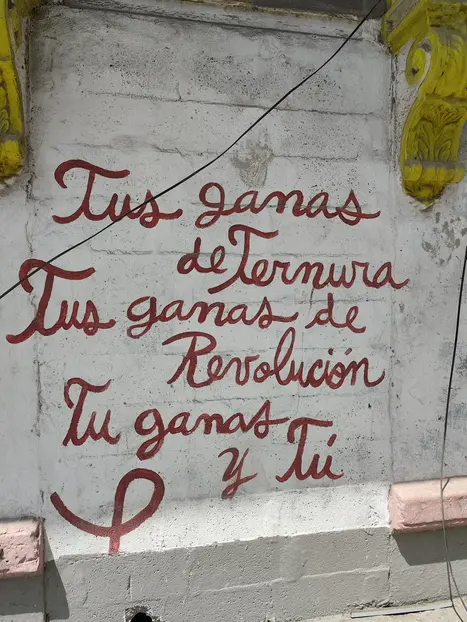 Tus ganas
de Ternura
Tus ganas de
Revolución
Tu ganas
y Tú